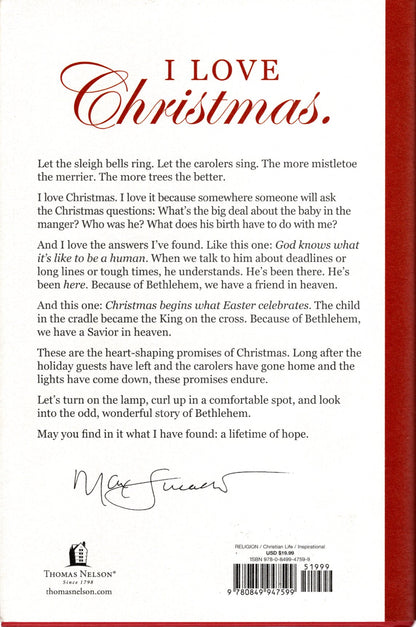 I LOVE
Christmas.
Let the sleigh bells ring. Let the carolers sing. The more mistletoe
the merrier. The more trees the better.
I love Christmas. I love it because somewhere someone will ask
the Christmas questions: What's the big deal about the baby in the
manger? Who was he? What does his birth have to do with me?
And I love the answers I've found. Like this one: God knows what
it's like to be a human. When we talk to him about deadlines or
long lines or tough times, he understands. He's been there. He's
been here. Because of Bethlehem, we have a friend in heaven.
And this one: Christmas begins what Easter celebrates. The child
in the cradle became the King on the cross. Because of Bethlehem,
we have a Savior in heaven.
These are the heart-shaping promises of Christmas. Long after the
holiday guests have left and the carolers have gone home and the
lights have come down, these promises endure.
Let's turn on the lamp, curl up in a comfortable spot, and look
into the odd, wonderful story of Bethlehem.
May you find in it what I have found: a lifetime of hope.
Max Lucado
THOMAS NELSON®
Since 1798
thomasnelson.com
RELIGION / Christian Life / Inspirational
USD $19.99
ISBN 978-0-8499-4759-9
51999
9 780849 947599